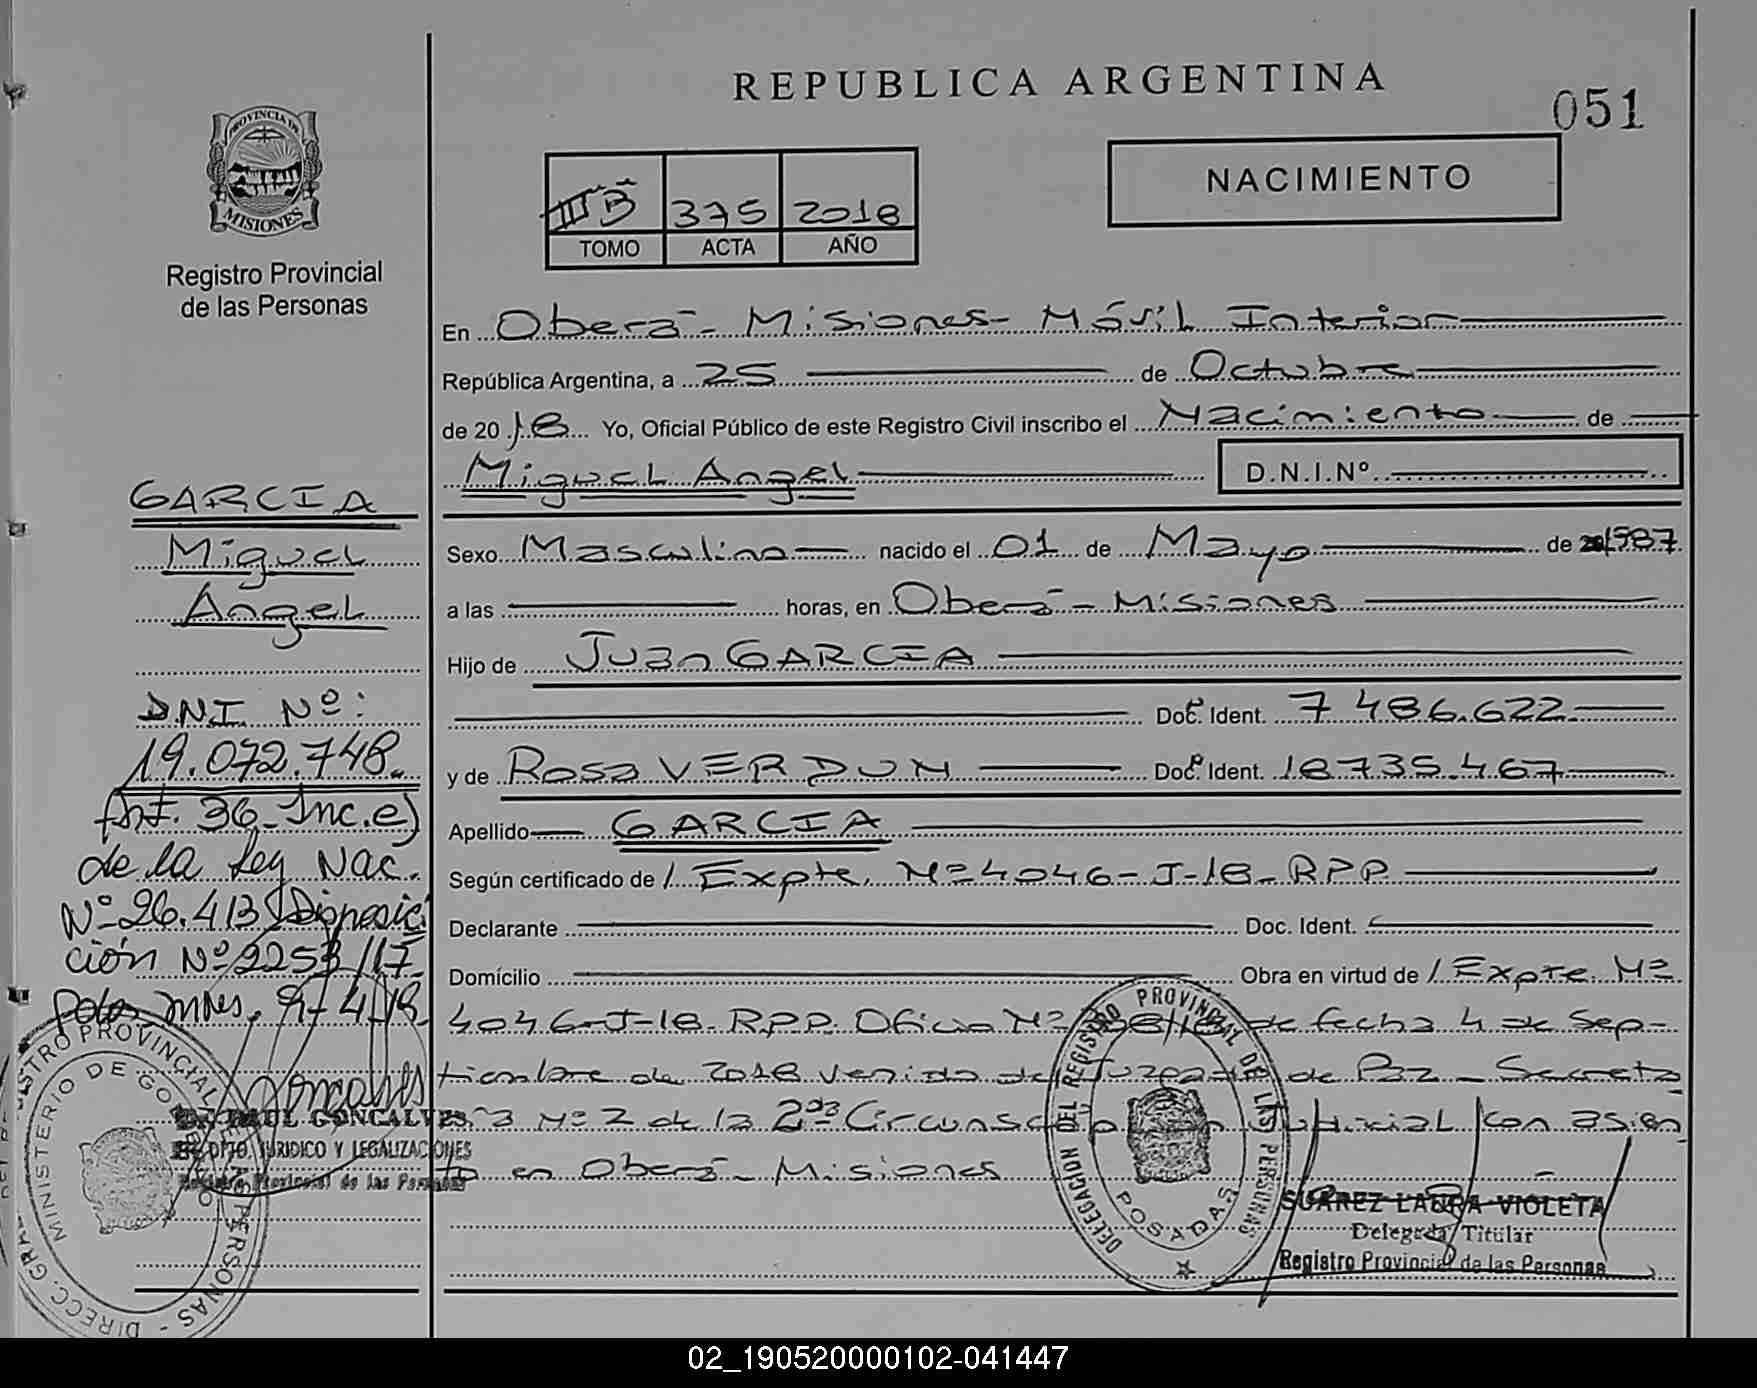 REPUBLICA ARGENTINA
051
PROVINCIA DE
MISIONES
Registro Provincial
de las Personas
NACIMIENTO
B 375 2018
TOMO ACTA AÑO
En Oberá - Misiones - Móvil Interior
República Argentina, a 25 de Octubre
de 2018 Yo, Oficial Público de este Registro Civil inscribo el Nacimiento de
Miguel Angel D.N.I.Nº
Sexo Masculino nacido el 01 de Mayo de 1987
a las horas, en Oberá - Misiones
Hijo de Juan GARCIA
Doc. Ident. 7 486.622
y de Rosa VERDUN Doc. Ident. 18735.467
Apellido GARCIA
Según certificado de / Expte. Nº 4046-J-18-RPP
Declarante Doc. Ident.
Domicilio Obra en virtud de / Expte. Nº
4046-J-18-R.P.P. Oficio Nº de fecha 4 de Sep-
tiembre de 2018 venido de Juzgado de Paz - Secreta
3 Nº 2 de la 2da Circunscripción Judicial con asien
to en Oberá - Misiones
GARCIA
Miguel
Angel
DNI Nº:
19.072.748
Art. 36 - Inc. e)
de la Ley Nac.
Nº 26.413 Disposici
ción Nº 2253/17
Pdas Mnes, 9-4-18
GONCALVES
DPTO. JURIDICO Y LEGALIZACIONES
Registro Provincial de las Personas
MINISTERIO DE GOBIERNO
DELEGACION DEL REGISTRO PROVINCIAL DE LAS PERSONAS
POSADAS
SUAREZ LAURA VIOLETA
Delegada Titular
Registro Provincial de las Personas
02_190520000102-041447